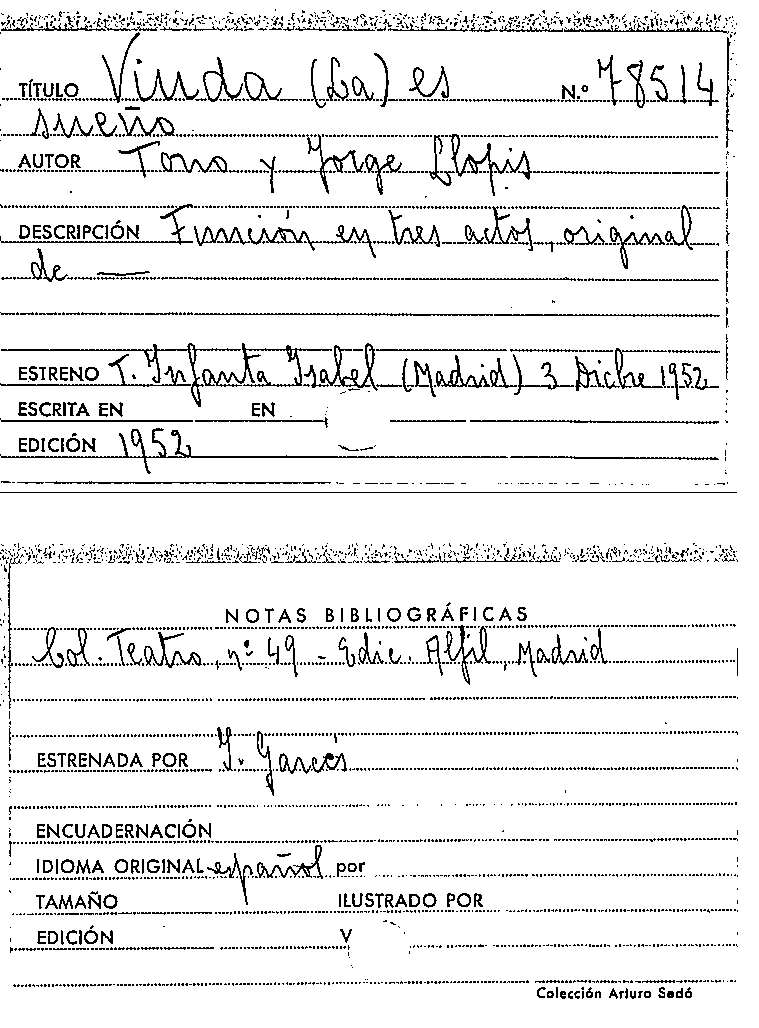 TÍTULO Viuda (La) es N.º 78514
sueño
AUTOR Tono y Jorge Llopis
DESCRIPCIÓN Función en tres actos, original
de —
ESTRENO T. Infanta Isabel (Madrid) 3 Dicbre 1952
ESCRITA EN EN
EDICIÓN 1952
NOTAS BIBLIOGRÁFICAS
Col. Teatro, nº 49 - Edic. Alfil, Madrid
ESTRENADA POR I. Garcés
ENCUADERNACIÓN
IDIOMA ORIGINAL español por
TAMAÑO ILUSTRADO POR
EDICIÓN V
Colección Arturo Sedó